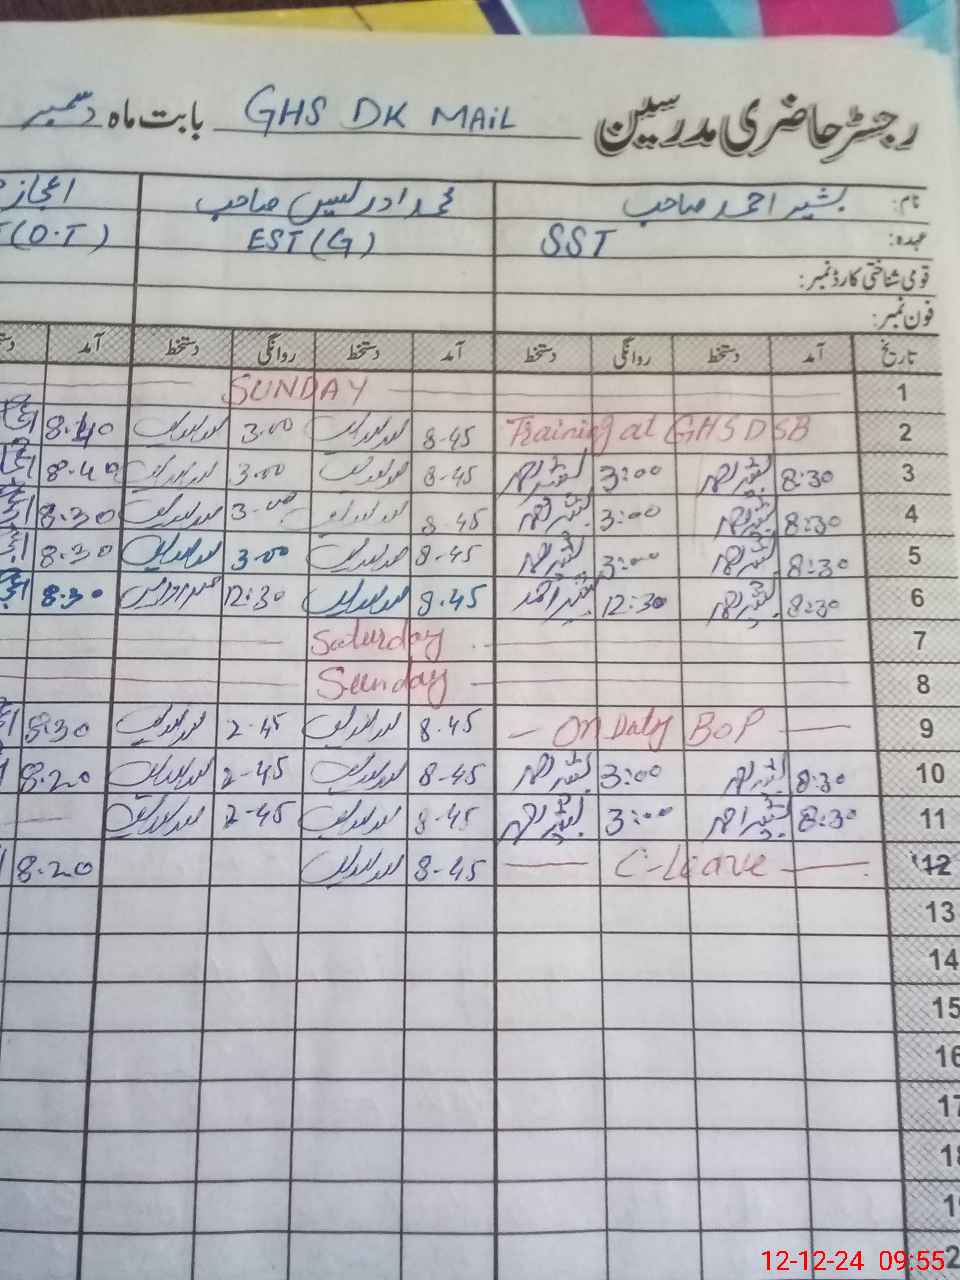 رجسٹر حاضری مدرسین GHS DK MAIL بابت ماہ دسمبر
نام: بشیر احمد صاحب محمد ادریس صاحب اعجاز
عہدہ: SST EST (G) (O.T)
قومی شناختی کارڈ نمبر:
فون نمبر:
تاریخ آمد دستخط روانگی دستخط آمد دستخط روانگی دستخط آمد
1 SUNDAY
2 Training at GHS DSB 8-45 3.00 8.40
3 8:30 3:00 8-45 3.00 8.40
4 8:30 3:00 8-45 3.00 8.30
5 8:30 3:00 8-45 3.00 8.30
6 8:30 بشیر احمد 12:30 8.45 12:30 8.30
7 Saturday
8 Sunday
9 — On Duty BOP — 8.45 2-45 8.30
10 8:30 3:00 8-45 2-45 8.20
11 8:30 بشیر احمد 3:00 8-45 2-45
12 — C-Leave — 8-45 8.20
13
14
15
16
17
18
12-12-24 09:55